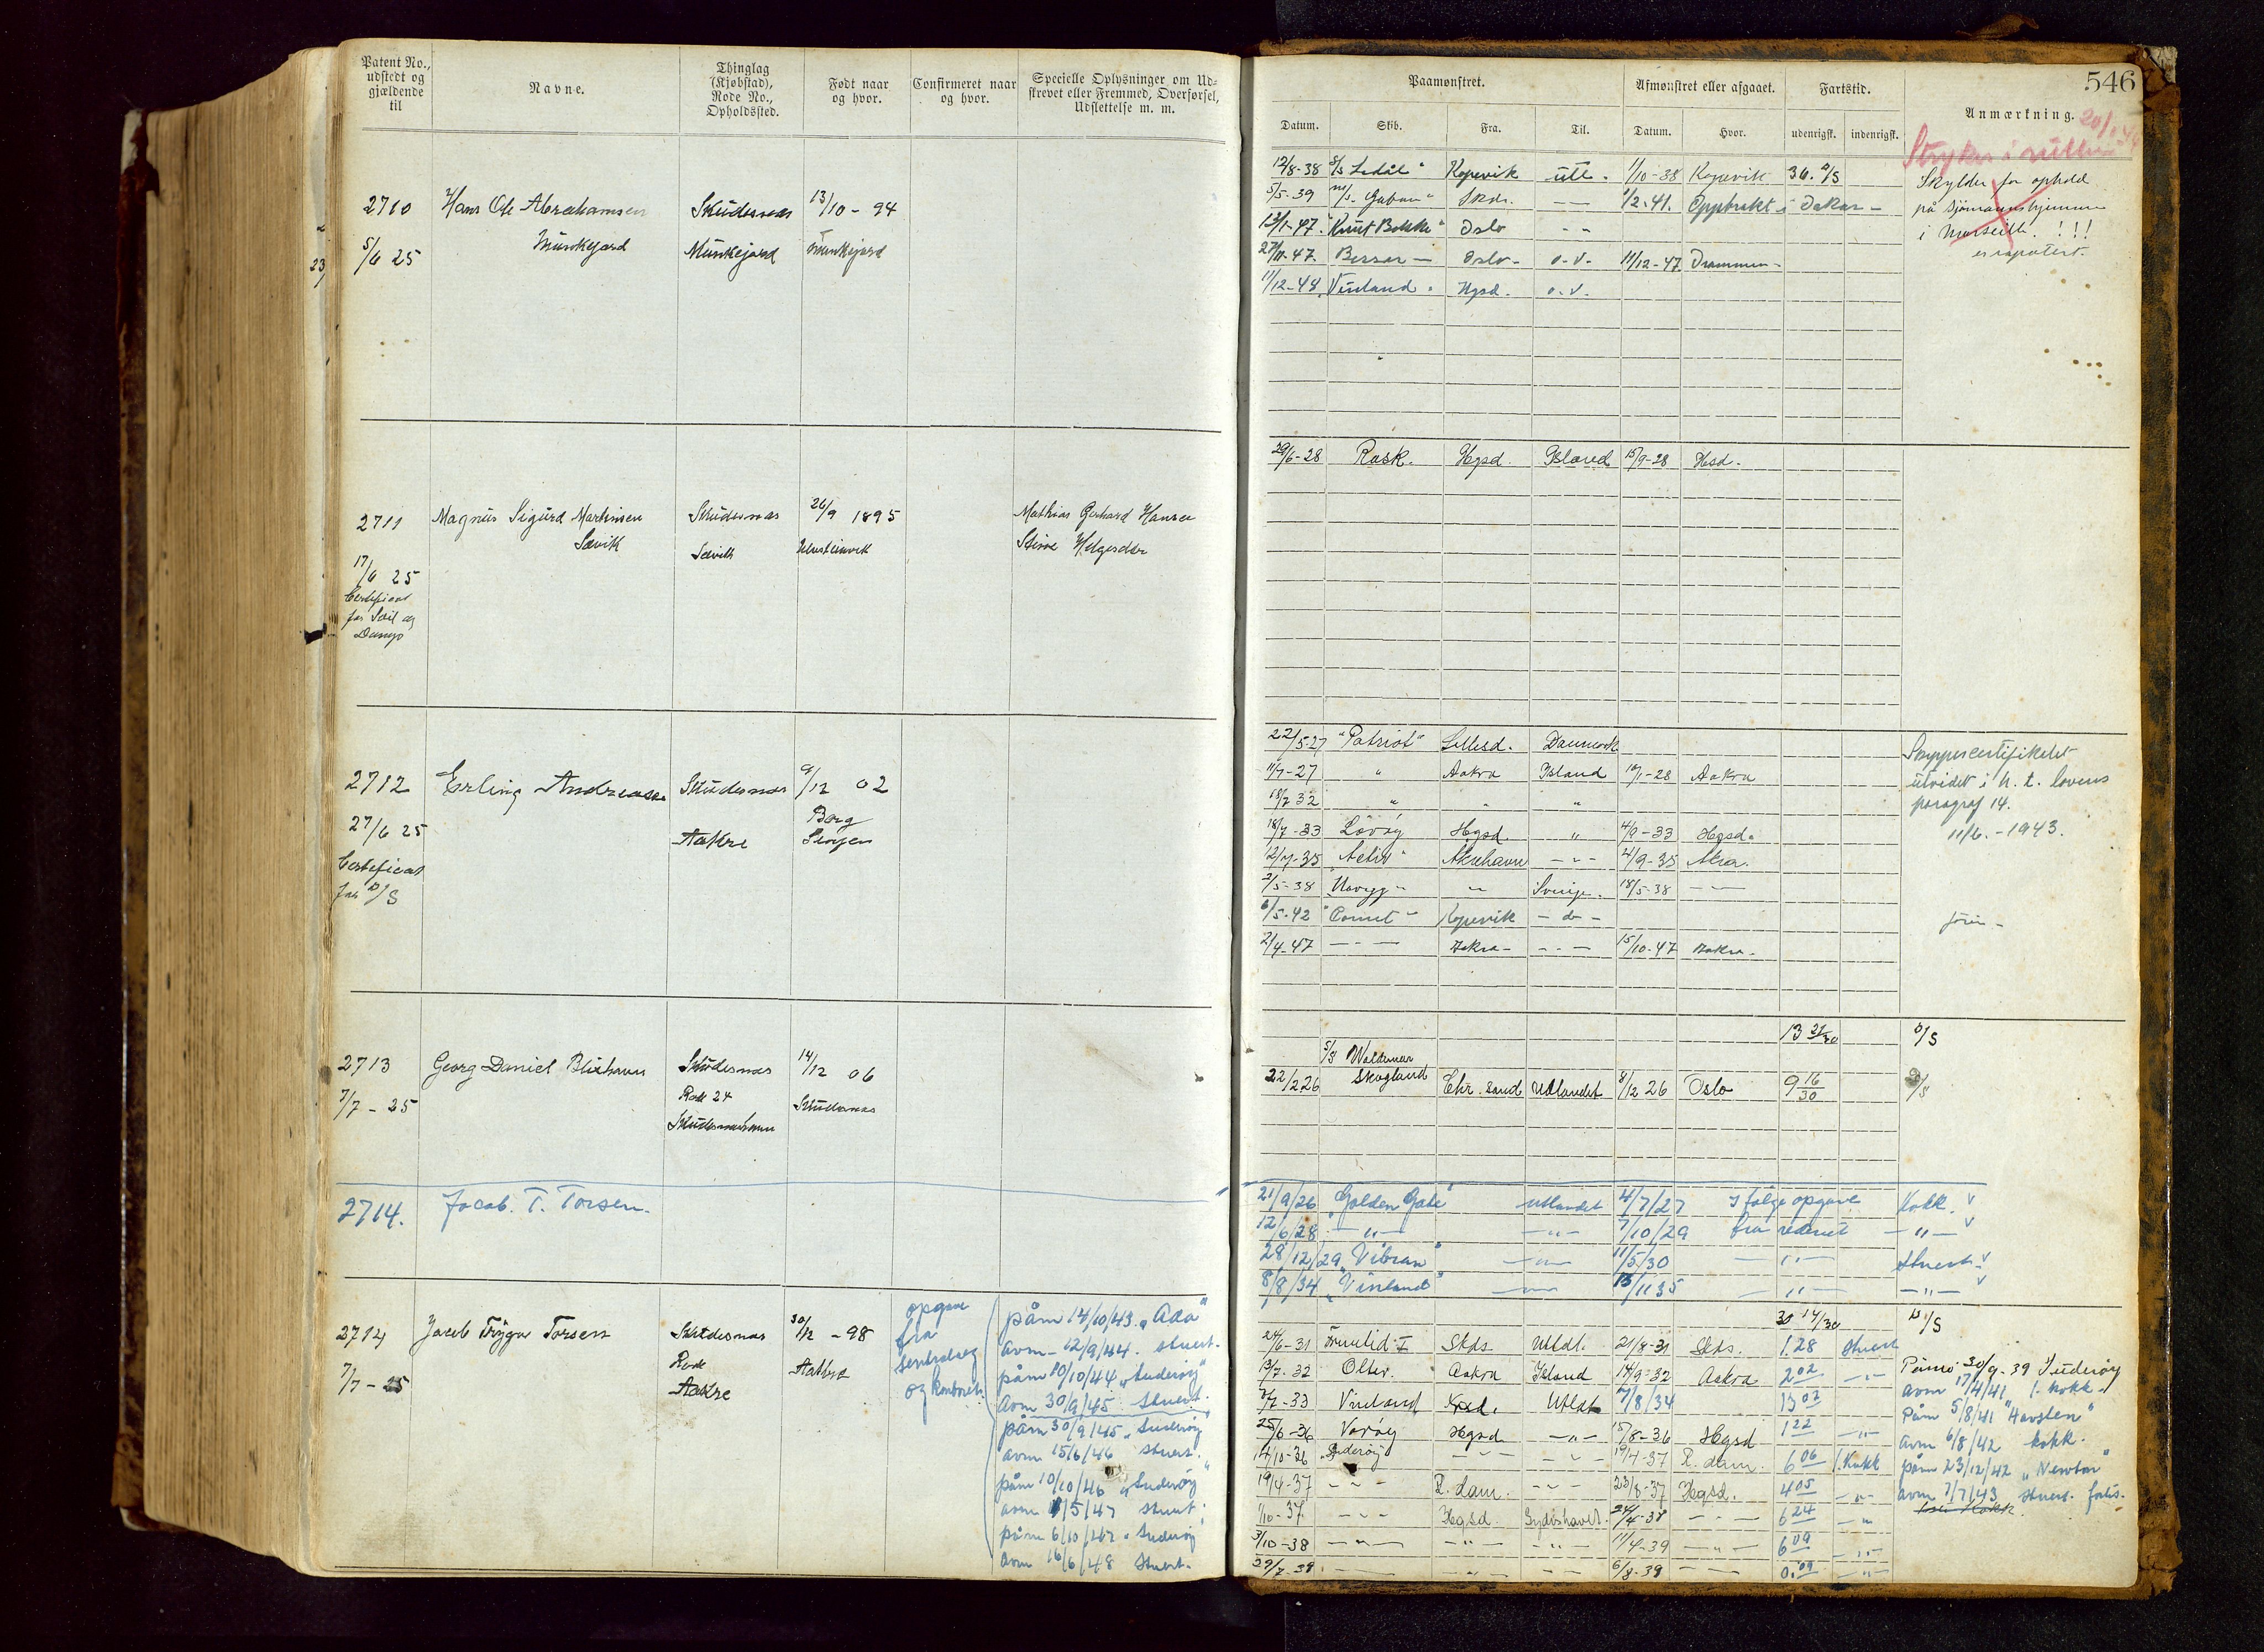 Patent No.,
udstedt og
gjældende
til
Navne.
Thinglag
(Kjøbstad),
Rode No.,
Opholdssted.
Født naar
og hvor.
Confirmeret naar
og hvor.
Specielle Oplysninger om Ud-
skrevet eller Fremmed, Overførsel,
Udslettelse m. m.
2710 Hans Ole Abrahamsen Skudesnæs 13/10 - 94
5/6 25 Munkejord Munkejord Munkejord
23
2711 Magnus Sigurd Martinsen Skudesnæs 26/9 1895 Mathias Gerhard Hansen
Sævik Sævik
17/6 25
Certificat
for Seil og
Damp
2712 Erling Andreassen Skudesnæs 9/12 02
27/6 25 Aakre
Certificat
for D/S
2713 Georg Daniel Blixhavn Skudesnæs 14/12 06
7/7 - 25 Rode 24 Skudesnæs
Skudesneshavn
2714. Jacob. T. Torsen.
2714 Jacob Trygve Torsen Skudesnæs 30/12 - 98
7/7 - 25 Rode
Aakre
opgave
fra
og kontoret
påm 14/10/43 "Ada"
avm - 12/9/44. stuert.
påm 10/10/44 "Suderøy"
avm 30/9/45 Stuert.
påm 30/9/45 "Suderøy
avm 15/6/46 stuert.
påm 10/10/46 "Suderøy"
avm 1/5/47 stuert;
påm 6/10/47 "Suderøy
avm 16/6/48 stuert.
546
Paamønstret.
Afmønstret eller afgaaet.
Fartstid.
Anmærkning.
Datum. Skib. Fra. Til. Datum. Hvor. udenrigsk. indenrigsk.
Strykes i rullen
12/8-38 Kopevik utl. 1/10-38 Kopevik 36. D/S
Skylder for ophold
5/5-39 M/S "Gabon" Skdn. 1/2-41. Opptrukt i Dakar -
på sjømannshjemmet
13/1-47. "Knut Bakke" Oslo
i Marseille. !!!
27/11-47. Bessa - Oslo - o.v. 11/12-47 Drammen -
11/12-48 Vinland. Hgsd. o.v.
29/6-28 Rask. Hgsd. Island 15/9-28 Hsd.
22/5-27 "Patriot" Danmark
Skyppercertifikatet
11/7-27 " Aakra Island 10/1-28 Aakra
utvidet i h. t. lovens
13/7 32 " " "
paragraf 14.
18/7-33 Løvøy Hgsd. " 4/9-33 Hgsd.
11/6.-1943.
12/7-35 "Activ" Åkrehavn -"- 4/9-35 Åkra.
2/5-38 " Sverige. 18/5-38
6/5-42 "Comet" Kopevik - do -
2/4-47 Aakra - 15/10-47 Aakra.
13 21/30 D/S
S/S Waldemar
22/2 26 Skogland Chr.sand Udlandet 8/12 26 Oslo 9 16/30 D/S
21/9/26 "Golden Gate" utlandet 4/7/27 Ifølge opgave Kokk. v
12/6/28 -"- -"- 7/10/29 fra rederiet -"- v
28/12/29 "Vibran" -"- 11/5/30 -"- Stuert. v
8/8/34 "Vinland" -"- 13/11 35 -"- -"- v
30 14/30 D/S
24/6-31 Skds. Utldt. 21/8-31 Skds. 1.28 Stuert
13/7-32 Oliv. Aakra Island 14/9-32 Aakra 2 02 -"-
Påmø 30/9.39 Suderøy
7/7-33 Vinland Utldt 7/8/34 13 02
avm 17/4/41 1. kokk.
25/6-36 Varøy Hgsd -"- 15/8-36 Hgsd 1 22 -"-
Påm 5/8/41 "Havsten"
14/10-36 Suderøy -"- 19/4-37 R. dam. 6 06 1. Kokk
avm 6/8/42 kokk.
19/4-37 -"- R. dam. -"- 23/8-37 Hgsd. 4 05 -"-
påm 23/12/42 "Newton"
1/10-37 -"- Hgsd. Sydishavet. 24/4-38 -"- 6 24 -"-
avm 7/7/43 stuert. forlis.
3/10-38 -"- -"- -"- 11/4-39 -"- 6 09 -"-
29/7-39. 6/8-39 0.09 -"-